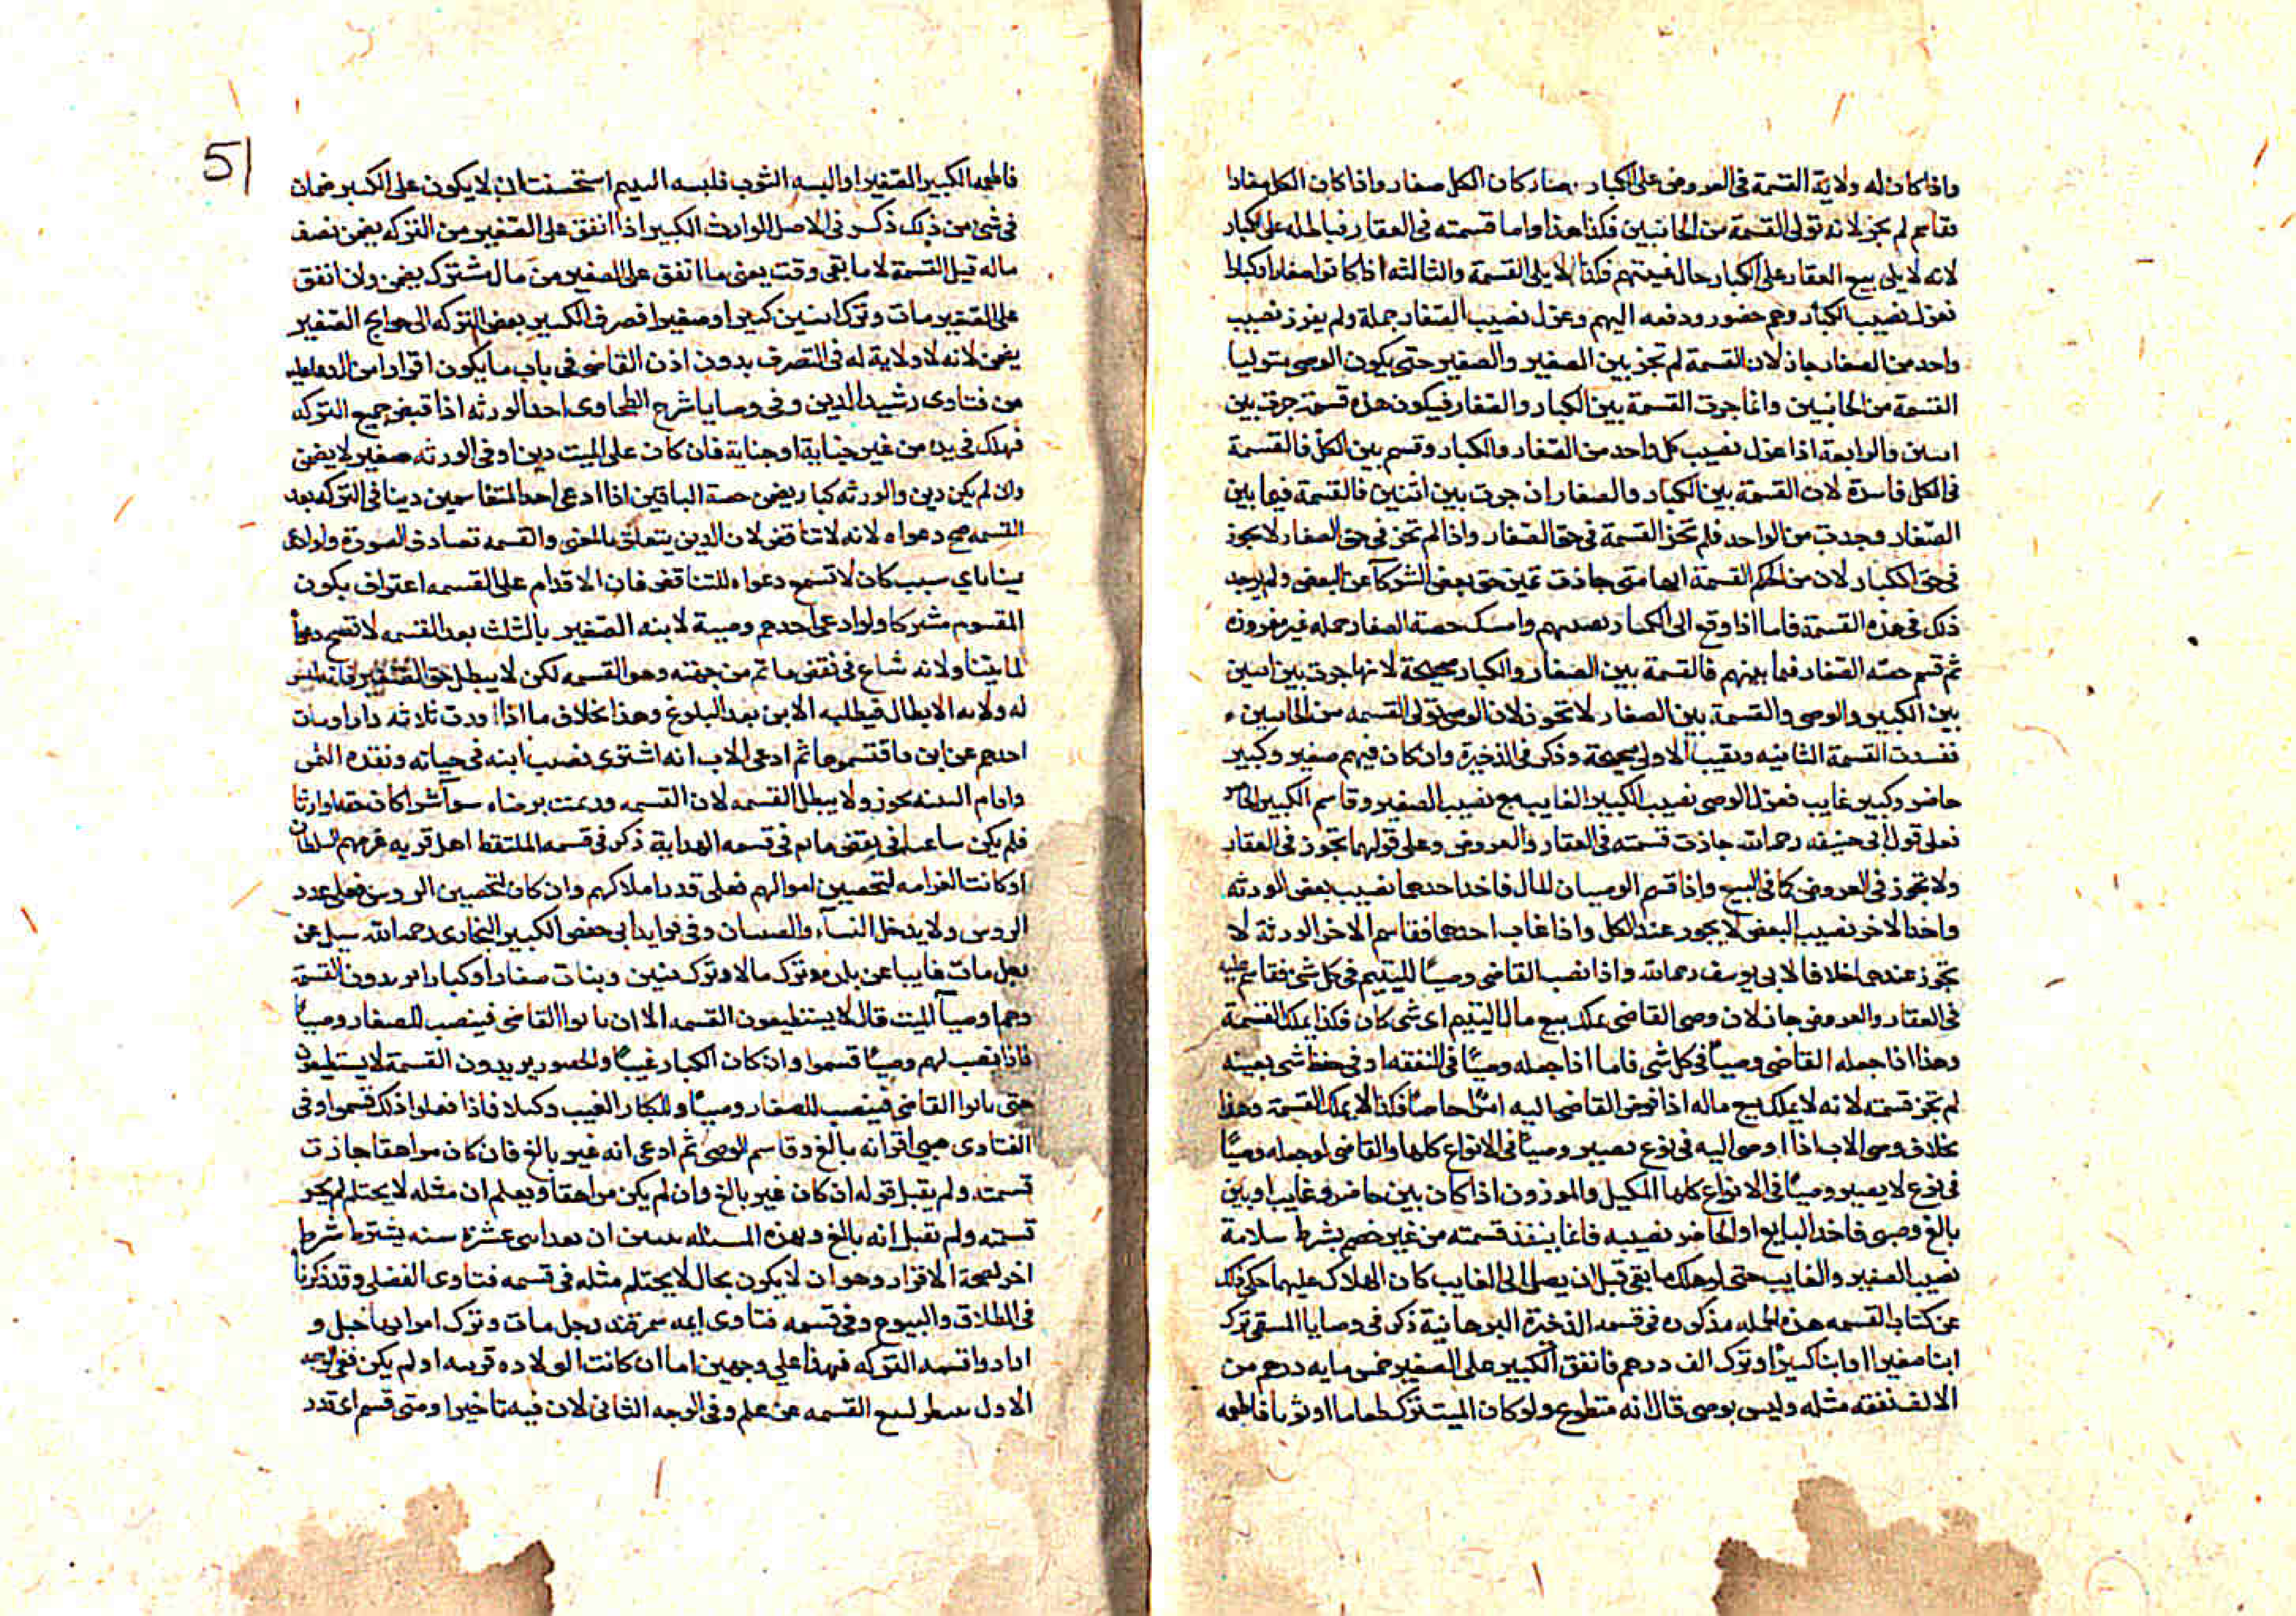 واذا كان له ولاية القسمة في العروض على الكبار صار كان الكل صغار واذا كان الكل صغارا
فقاسم لم يجز لانه تولى القسمة من الجانبين فكذا هذا واما قسمته في العقار فباطلة على الكبار
لانه لا يلي بيع العقار على الكبار حال غيبتهم فكذا لا يلي القسمة والثالثه اذا كانوا صغارا وكبارا
فعزل نصيب الكبار وهم حضور ودفعه اليهم وعزل نصيب الصغار جملة ولم يفرز نصيب
واحد من الصغار جاز لان القسمة لم تجز بين الصغير والصغير حتى يكون الوصي متوليا
القسمة من الجانبين وانما جرت القسمة بين الكبار والصغار فيكون هذه قسمة جرت بين
اسين والرابعة اذا عزل نصيب كل واحد من الصغار والكبار وقسم بين الكل فالقسمة
في الكل فاسدة لان القسمة بين الكبار والصغار ان جرت بين اثنين فالقسمة فيما بين
الصغار وجدت من الواحد فلم تجز القسمة في حق الصغار واذا لم تجز في حق الصغار لا يجوز
في حق الكبار لان من حكم القسمة انها متى جازت تميز حق بعض الشركآ عن البعض ولم يوجد
ذلك في هذه القسمة فاما اذا وقع الى الكبار نصيبهم وامسك حصة الصغار جمله غير مفروزه
ثم قسم حصته الصغار فيما بينهم فالقسمة بين الصغار والكبار صحيحة لانها جرت بين اسين
بين الكبير والوصي والقسمة بين الصغار لا تجوز لان الوصي تولى القسمه من الجانبين
ففسدت القسمة الثانيه وبقيت الاولى صحيحة وذكر في الذخيرة وان كان فيهم صغير وكبير
حاضر وكبير غايب فعزل الوصي نصيب الكبير الغايب مع نصيب الصغير وقاسم الكبير الحاضر
فعلى قول ابي حنيفه رحمه الله جازت قسمته في العقار والعروض وعلى قولهما تجوز في العقار
ولا تجوز في العروض كما في البيع واذا قسم الوصيان المال فاخذ احدهما نصيب بعض الورثه
واخذ الاخر نصيب البعض لا يجوز عند الكل واذا غاب احدهما فقاسم الاخر الورثة لا
تجوز عندهما خلافا لابي يوسف رحمه الله واذا نصب القاضي وصيا لليتيم في كل شي فقاسم عليه
في العقار والعروض جاز لان وصي القاضي يملك بيع مال اليتيم اي شي كان فكذا يملك القسمة
وهذا اذا جعله القاضي وصيا في كل شي فاما اذا جعله وصيا في النفقه او في حفظ شي بعينه
لم تجز قسمته لانه لا يملك بيع ماله اذا فوض القاضي اليه امرا خاصا فكذا لا يملك القسمة وهذا
بخلاف وصي الاب اذا اوصى اليه في نوع يصير وصيا في الانواع كلها والقاضي لو جعله وصيا
في نوع لا يصير وصيا في الانواع كلها المكيل والموزون اذا كان بين حاضر وغايب او بين
بالغ وصبي فاخذ البالغ او الحاضر نصيبه فانما ينفذ قسمته من غير خصم بشرط سلامة
نصيب الصغير والغايب حتى لو هلك ما بقي قبل ان يصل الى الغايب كان الهلاك عليهما حكي ذلك
عن كتاب القسمه هذه الجمله مذكوره في قسمه الذخيرة البرهانية ذكر في وصايا المنتقى ترك
ابنا صغيرا وابنا كبيرا وترك الف درهم فانفق الكبير على الصغير خمس مايه درهم من
الالف نفقه مثله وليس بوصي قال انه متطوع ولو كان الميت ترك طعاما او ثوبا فاطعمه
51
فاطعمه الكبير الصغير او البسه الثوب فلبسه اليتيم استحسنت ان لا يكون على الكبير ضمان
في شي من ذلك ذكر في الاصل الوارث الكبير اذا انفق على الصغير من التركه يضمن نصف
ماله قبل القسمة لا ما بقي وقت يعني ما انفق على الصغير من مال مشترك يضمن وان انفق
على الصغير مات وترك ابنين كبيرا وصغيرا فصرف الكبير بعض التركه الى حوايج الصغير
يضمن لانه لا ولاية له في التصرف بدون اذن القاضي في باب ما يكون اقرارا من المدعى عليه
من فتاوى رشيد الدين وفي وصايا شرح الطحاوي احد الورثه اذا قبض جميع التركه
فهلك في يده من غير خيانة او جناية فان كان على الميت دين او في الورثه صغير لا يضمن
وان لم يكن دين والورثه كبار يضمن حصة الباقين اذا ادعى احد المتقاسمين دينا في التركه بعد
القسمه صح دعواه لانه لا تناقض لان الدين يتعلق بالمعنى والقسمه تصادف الصورة ولو ادعى
عينا باي سبب كان لا تسمع دعواه للتناقض فان الاقدام على القسمه اعتراف بكون
المقسوم مشتركا ولو ادعى احدهم وصية لابنه الصغير بالثلث بعد القسمه لا تصح دعواه
لما بينا ولانه شاع في نقض ما تم من جهته وهو القسمه لكن لا يبطل حق الصغير فانه ليس
له ولايه الابطال فيطلبه الابن بعد البلوغ وهذا بخلاف ما اذا ورث ثلاثه دارا ومات
احدهم عن ابن فاقتسموها ثم ادعى الاب انه اشترى نصيب ابنه في حياته ونقده الثمن
واقام البينه يجوز ولا يبطل القسمه لان القسمه وقعت برضاه سوآ شرا كان حقه او ارثا
فلم يكن ساعيا في نقض ما تم في قسمه الهداية ذكر في قسمه الملتقط اهل قريه غرمهم السلطان
ان كانت الغرامه لتحصين اموالهم فعلى قدر املاكهم وان كان لتحصين الروس فعلى عدد
الروس ولا يدخل النسآء والصبيان وفي فوايد ابي حفص الكبير البخاري رحمه الله سيل عن
رجل مات غايبا عن بلده وترك مالا وترك بنين وبنات صغارا وكبارا يريدون القسمة
وهما وصيآ الميت قال لا يستطيعون القسمه الا ان ياتوا القاضي فينصب للصغار وصيا
فاذا نصب لهم وصيا قسموا وان كان الكبار غيبا والحضور يريدون القسمة لا يستطيعون
حتى ياتوا القاضي فينصب للصغار وصيا وللكبار الغيب وكيلا فاذا فعلوا ذلك قسموا وفي
الفتاوى صبي اقر انه بالغ وقاسم الوصي ثم ادعى انه غير بالغ فان كان مراهقا جازت
قسمته ولم يقبل قوله ان كان غير بالغ وان لم يكن مراهقا ويعلم ان مثله لا يحتلم لم يجز
قسمته ولم تقبل انه بالغ وبهذه المسئله تبين ان بعد اثني عشرة سنه يشترط شرط
اخر لصحة الاقرار وهو ان لا يكون بحال لا يحتلم مثله في قسمه فتاوى الفضلي وقد ذكرنا
في الطلاق والبيوع وفي قسمه فتاوى ايمه سمرقند رجل مات وترك امراه حبلى و
ارادوا قسمه التركه فهذا على وجهين اما ان كانت الولاده قريبه او لم يكن ففي الوجه
الاول القسمه عن علم وفي الوجه الثاني لان فيه تاخيرا ومتى قسم اي قدر